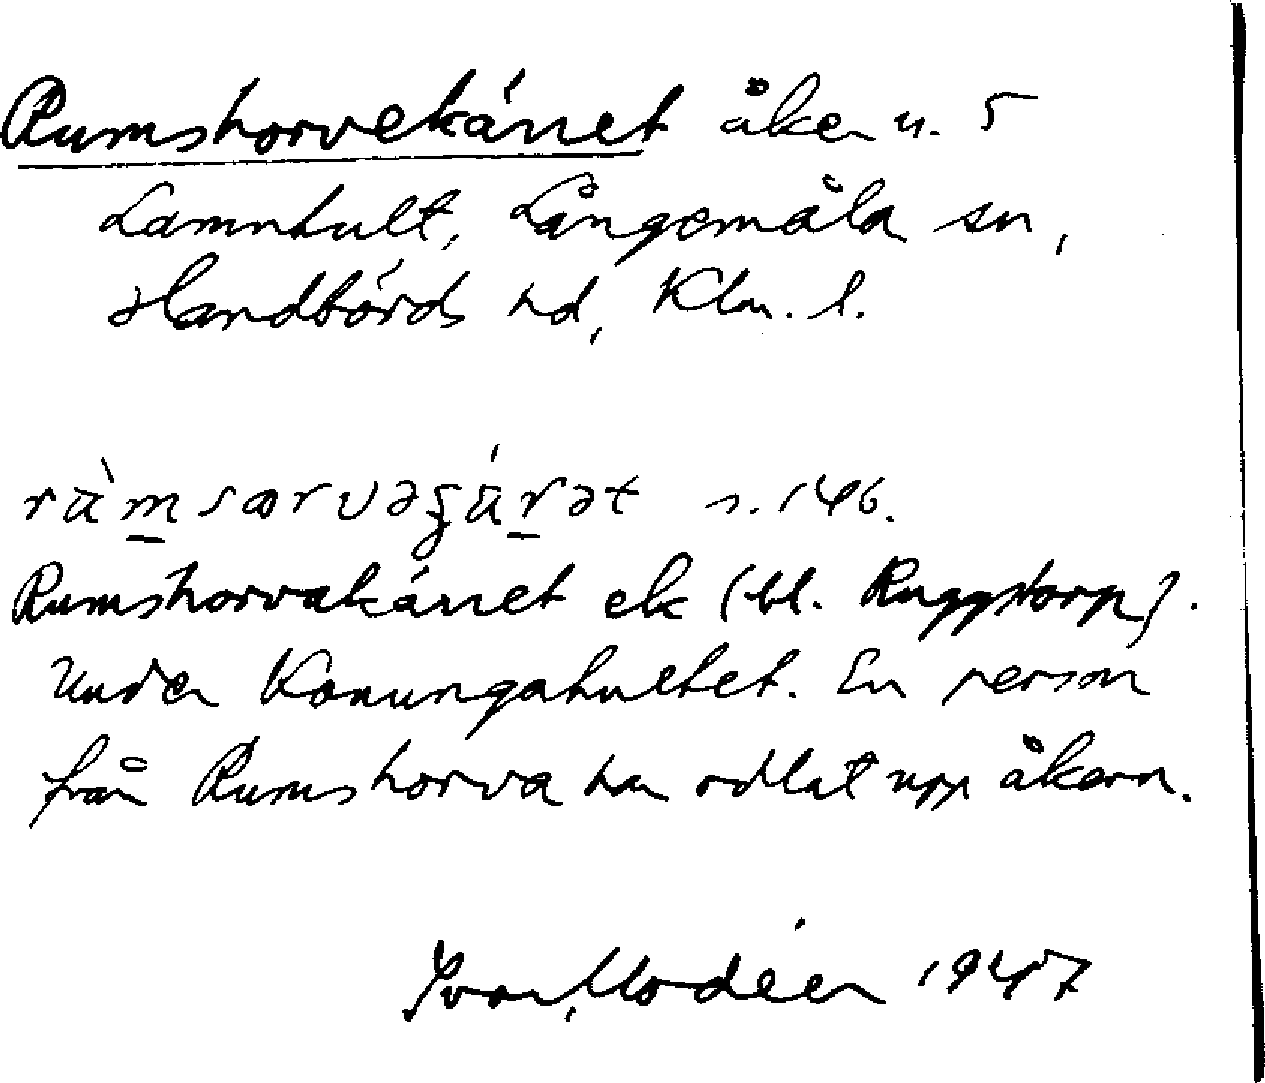 Rumshorvekärret åker u. 5
Lamnhult, Långemåla sn,
Handbörds hd, Klm. l.
rùmsorvəʒárət s. 146.
Rumshorvakärret ek (bl. Ruggstorp).
Under Konungahultet. En person
från Rumshorva har odlat upp åkern.
Ivar Modéer 1947